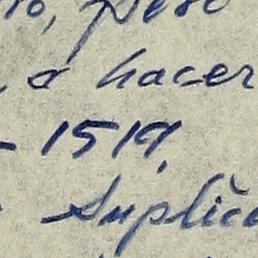 peso
a hacer
- 1519.
Suplica